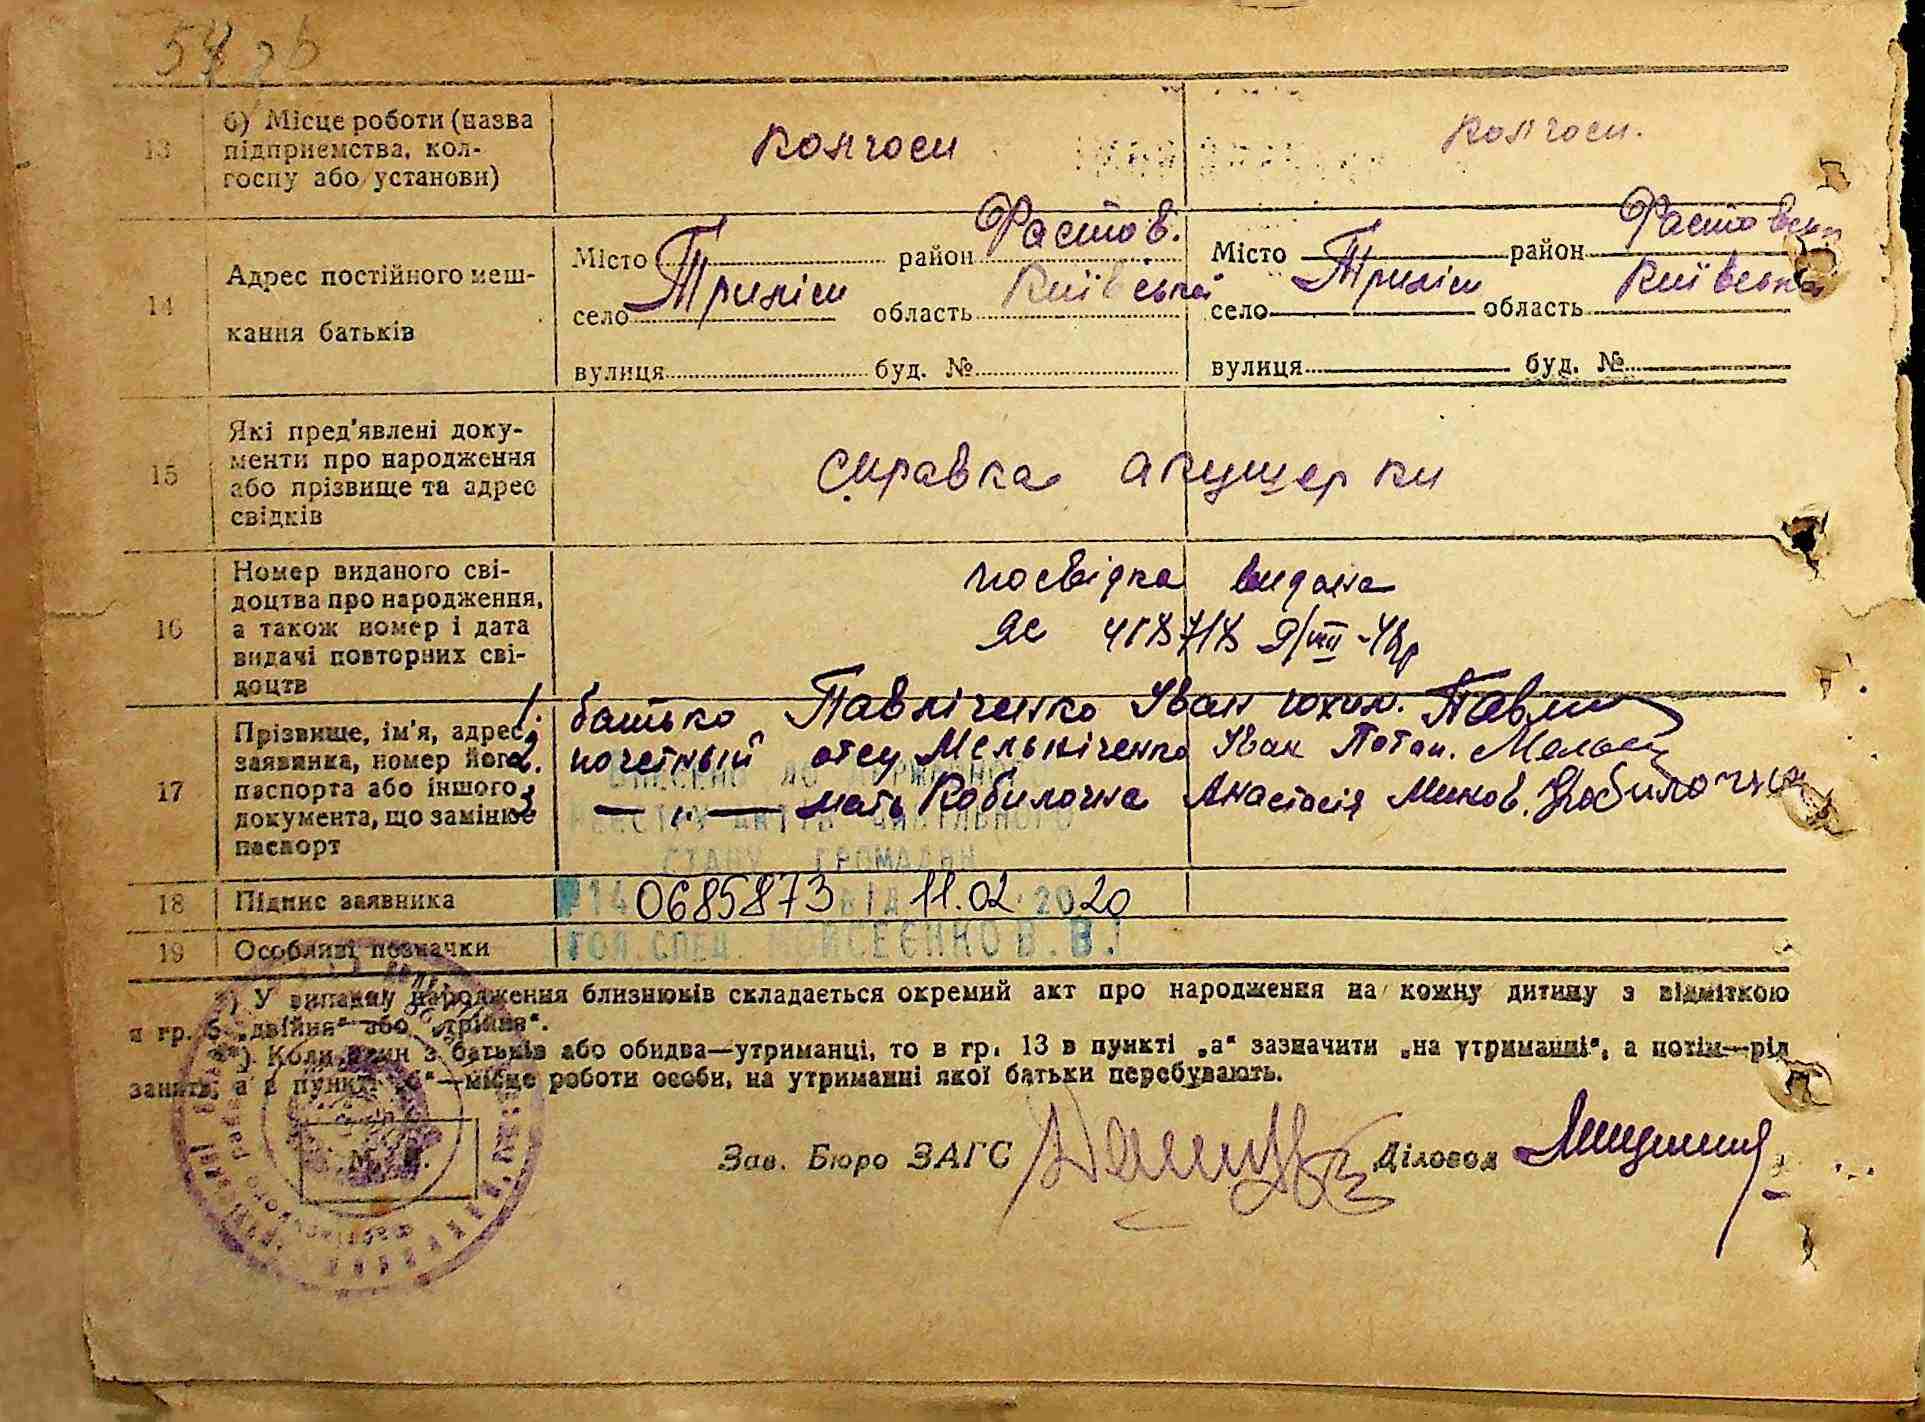 13
б) Місце роботи (назва
підприємства, кол-
госпу або установи)
колгосп
колгосп.
14
Адрес постійного меш-
кання батьків
Місто район Фастов.
село Триліси область Київській
вулиця буд. №
Місто район Фастовськ
село Триліси область Київська
вулиця буд. №
15
Які пред'явлені доку-
менти про народження
або прізвище та адрес
свідків
справка акушерки
16
Номер виданого сві-
доцтва про народження,
а також номер і дата
видачі повторних сві-
доцтв
посвідка видана
ЯС 418718 9/VIII-48р
17
Прізвище, ім'я, адрес
заявника, номер його
паспорта або іншого
документа, що замінює
паспорт
1. батько Павліченко Іван Юхим.
2. почетный отец Мельніченко Іван Потап.
3. — „ — мать Кобилочна Анастасія Миков. Кобилочна
ВНЕСЕНО ДО ДЕРЖАВНОГО
РЕЄСТРУ АКТІВ ЦИВІЛЬНОГО
СТАНУ ГРОМАДЯН
18
Підпис заявника
№140685873 ВІД 11.02.2020
19
Особливі позначки
ГОЛ.СПЕЦ. МОІСЕЄНКО В.В.
*) У випадку народження близнюків складається окремий акт про народження на кожну дитину з відміткою
в гр. 5 „двійня“ або „трійня“.
**) Коли один з батьків або обидва—утриманці, то в гр. 13 в пункті „а“ зазначити „на утриманні“, а потім—рід
занять, а в пункті „б“—місце роботи особи, на утриманні якої батьки перебувають.
М. П.
Зав. Бюро ЗАГС
Діловод